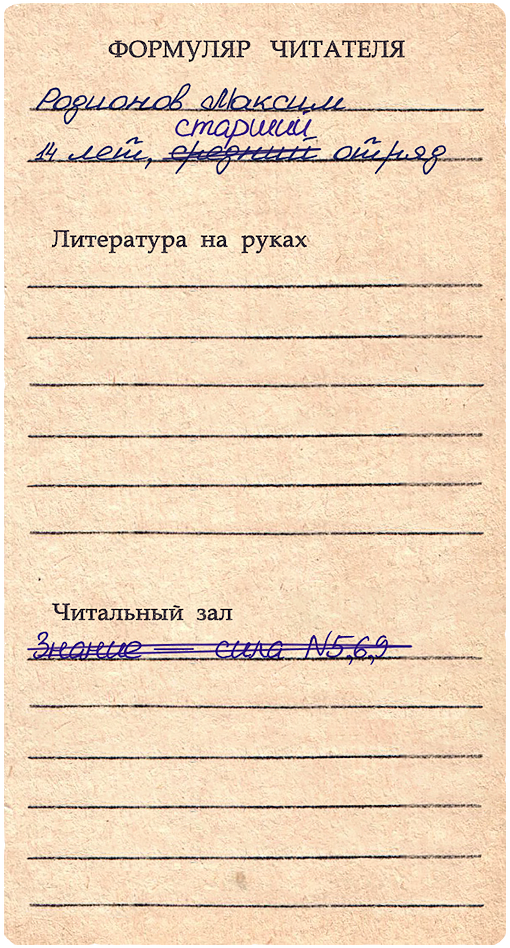 ФОРМУЛЯР ЧИТАТЕЛЯ
Родионов Максим
старший
14 лет, средний отряд
Литература на руках
Читальный зал
Знание — сила N5,6,9